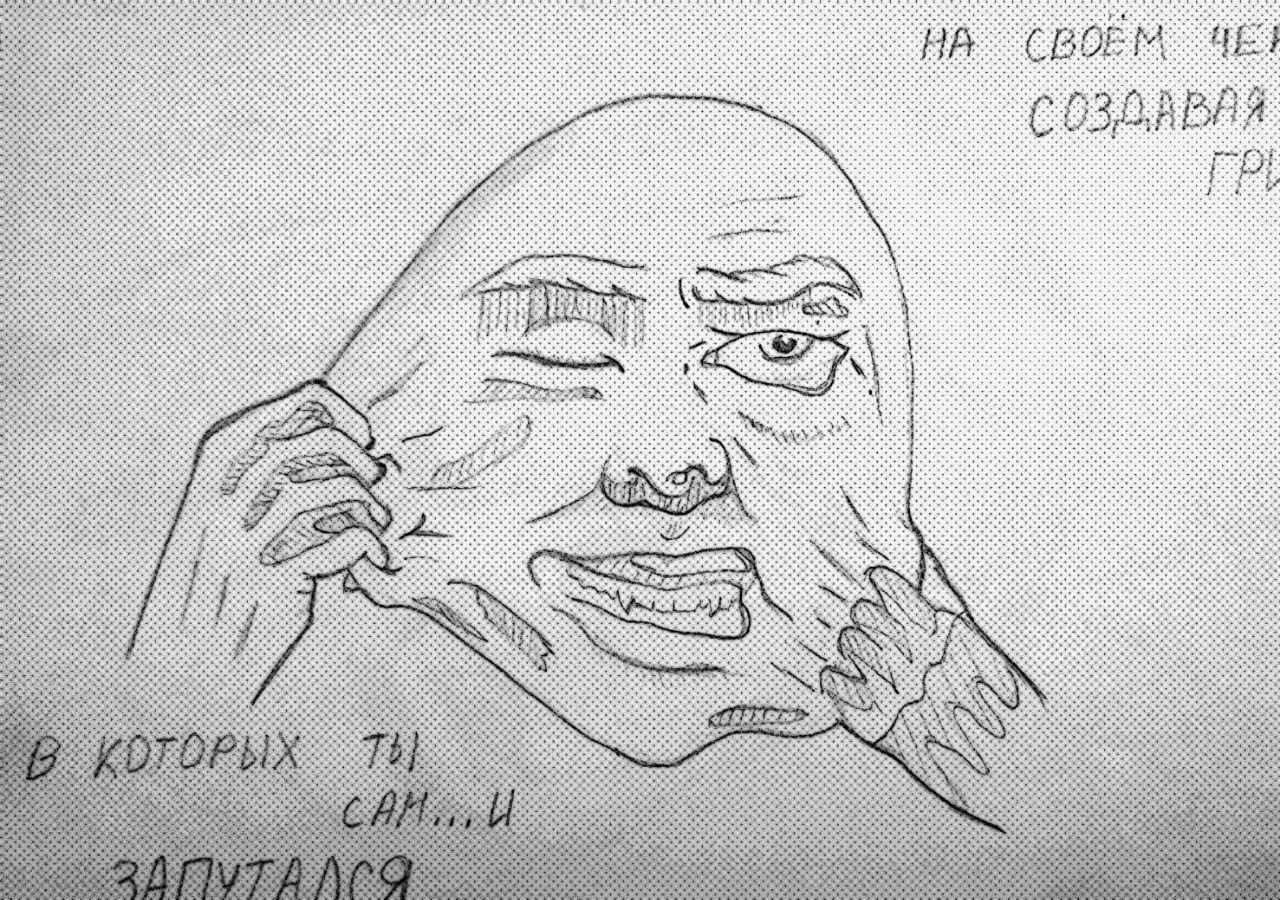 НА СВОЁМ
СОЗДАВАЯ
В КОТОРЫХ ТЫ
САМ...И
ЗАПУТАЛСЯ